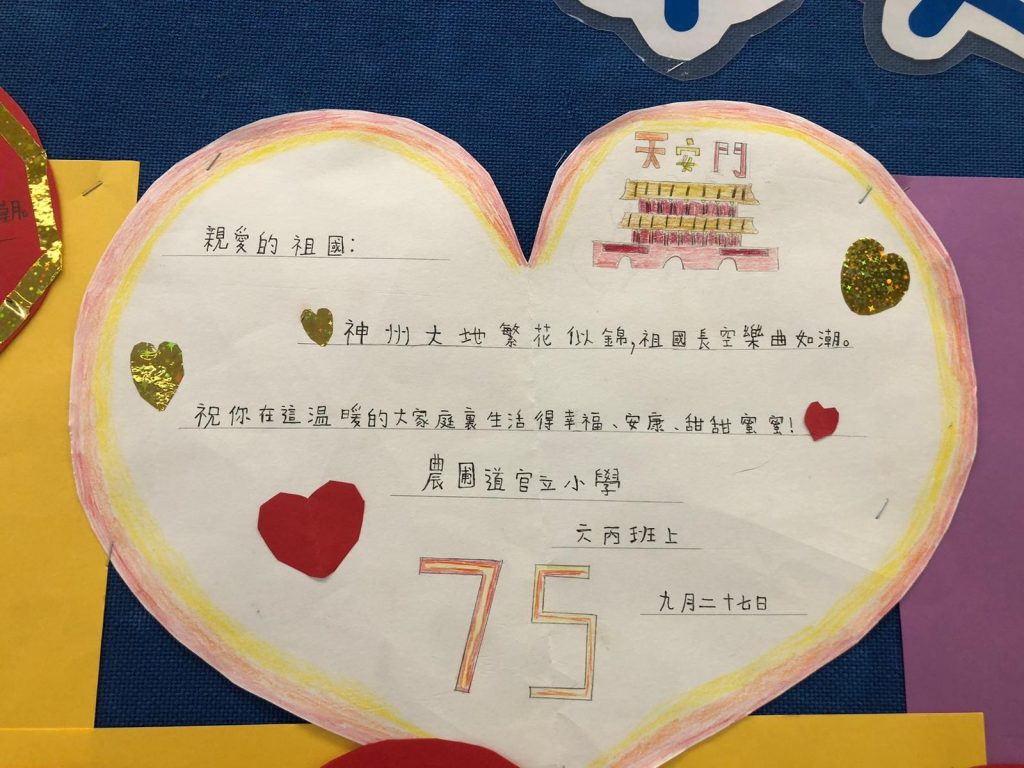 天安門
親愛的祖國：
神州大地繁花似錦,祖國長空樂曲如潮。
祝你在這温暖的大家庭裏生活得幸福、安康、甜甜蜜蜜!
農圃道官立小學
六丙班上
九月二十七日
75